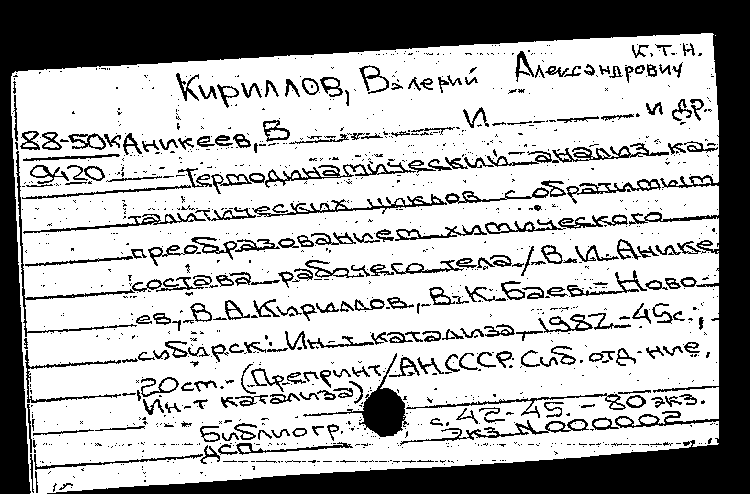 к.т.н.
Кириллов, Валерий Александрович
88-50к Аникеев, В И . и др.
9420 Термодинамический анализ ка-
талитических циклов с обратимым
преобразованием химического
состава рабочего тела / В.И. Анике-
ев, В.А. Кириллов, В.К. Баев. - Ново-
сибирск: Ин-т катализа, 1987. - 45с.;
20 см. - (Препринт / АН СССР. Сиб. отд-ние,
Ин-т катализа)
Библиогр.: с. 42-45. - 80 экз.
ДСП. экз. N 000002